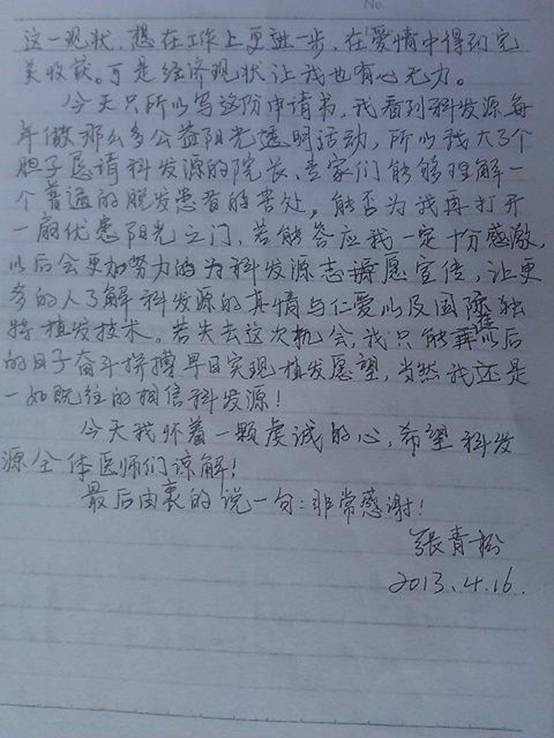 No.
这一现状，想在工作上更进一步，在爱情中得到完
美收获。可是经济现状让我也有心无力。
今天只所以写这份申请书，我看到科发源每
年做那么多公益阳光透明活动，所以我大了个
胆子恳请科发源的院长、专家们能够理解一
个普通的脱发患者的苦处，能否为我再打开
一扇优惠阳光之门，若能答应我一定十分感激，
以后会更加努力的为科发源志愿宣传，让更
多的人了解科发源的真情与仁爱以及国际独
特植发技术。若失去这次机会，我只能在以后
的日子奋斗拼搏早日实现植发愿望，当然我还是
一如既往的相信科发源！
今天我怀着一颗虔诚的心，希望科发
源全体医师们谅解！
最后由衷的说一句：非常感谢！
張青松
2013.4.16.